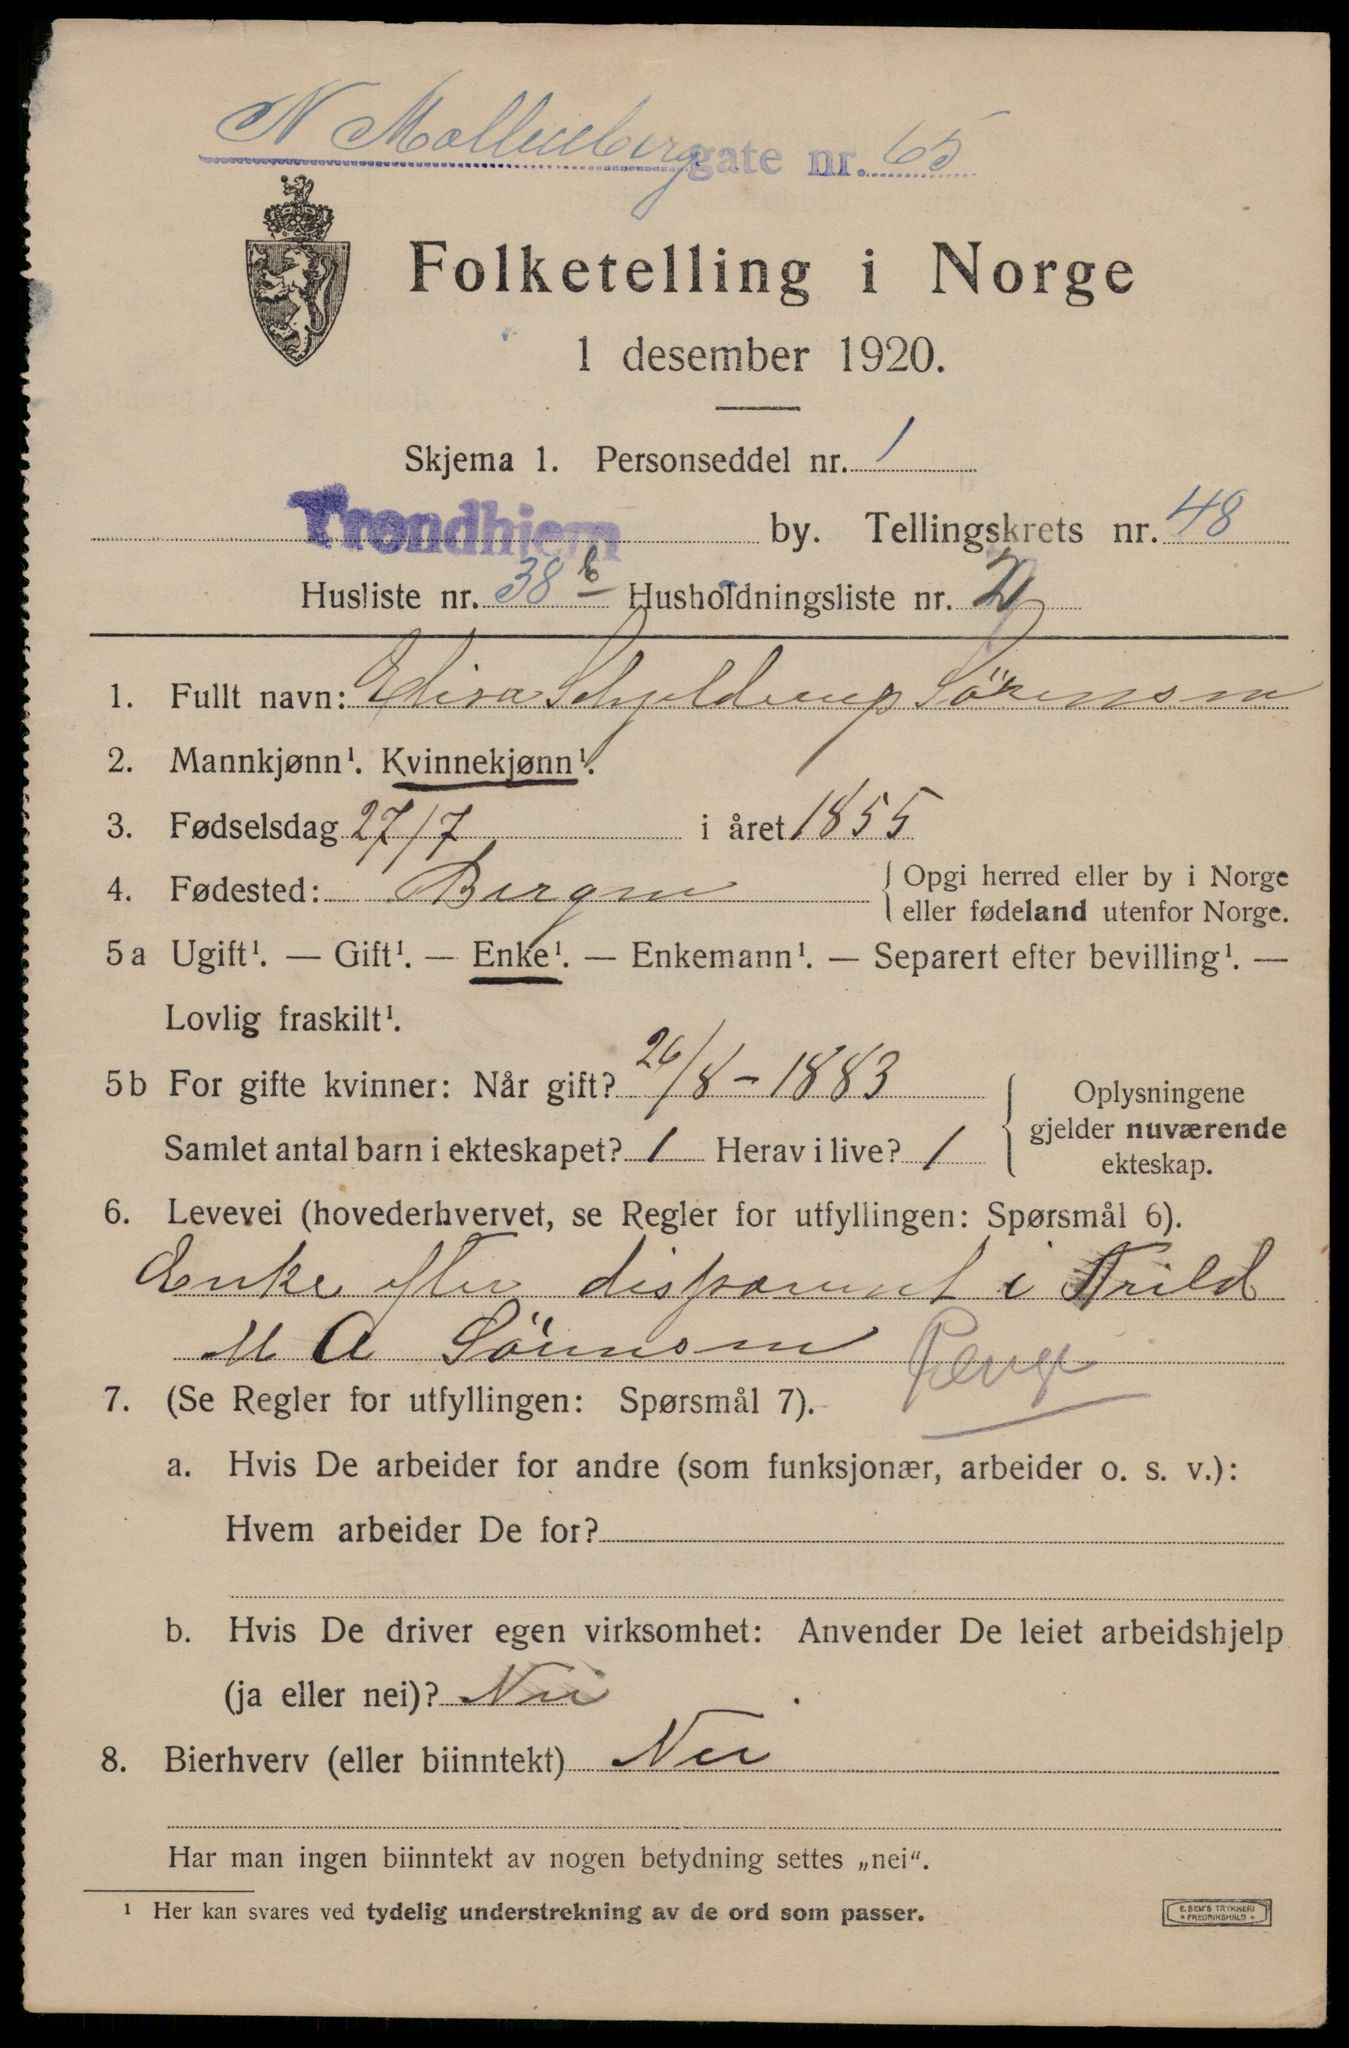 N Mollenberg gate nr. 65
Folketelling i Norge
1 desember 1920.
Skjema 1. Personseddel nr. 1
Trondhjem by. Tellingskrets nr. 48
Husliste nr. 38 b Husholdningsliste nr. 2
1. Fullt navn: Elisa Schjelderup Sörensen
2. Mannkjønn¹. Kvinnekjønn¹.
3. Fødselsdag 27/7 i året 1855
4. Fødested: Bergen { Opgi herred eller by i Norge
eller fødeland utenfor Norge.
5a Ugift¹. — Gift¹. — Enke¹. — Enkemann¹. — Separert efter bevilling¹. —
Lovlig fraskilt¹.
5b For gifte kvinner: Når gift? 26/8 - 1883
Samlet antal barn i ekteskapet? 1 Herav i live? 1
{ Oplysningene
gjelder nuværende
ekteskap.
6. Levevei (hovederhvervet, se Regler for utfyllingen: Spørsmål 6).
Enke efter disponent i
M A Sörensen
7. (Se Regler for utfyllingen: Spørsmål 7).
a. Hvis De arbeider for andre (som funksjonær, arbeider o. s. v.):
Hvem arbeider De for?
b. Hvis De driver egen virksomhet: Anvender De leiet arbeidshjelp
(ja eller nei)? Nei
8. Bierhverv (eller biinntekt) Nei
Har man ingen biinntekt av nogen betydning settes „nei".
¹ Her kan svares ved tydelig understrekning av de ord som passer.
E. SEM'S TRYKKERI
* FREDRIKSHALD *